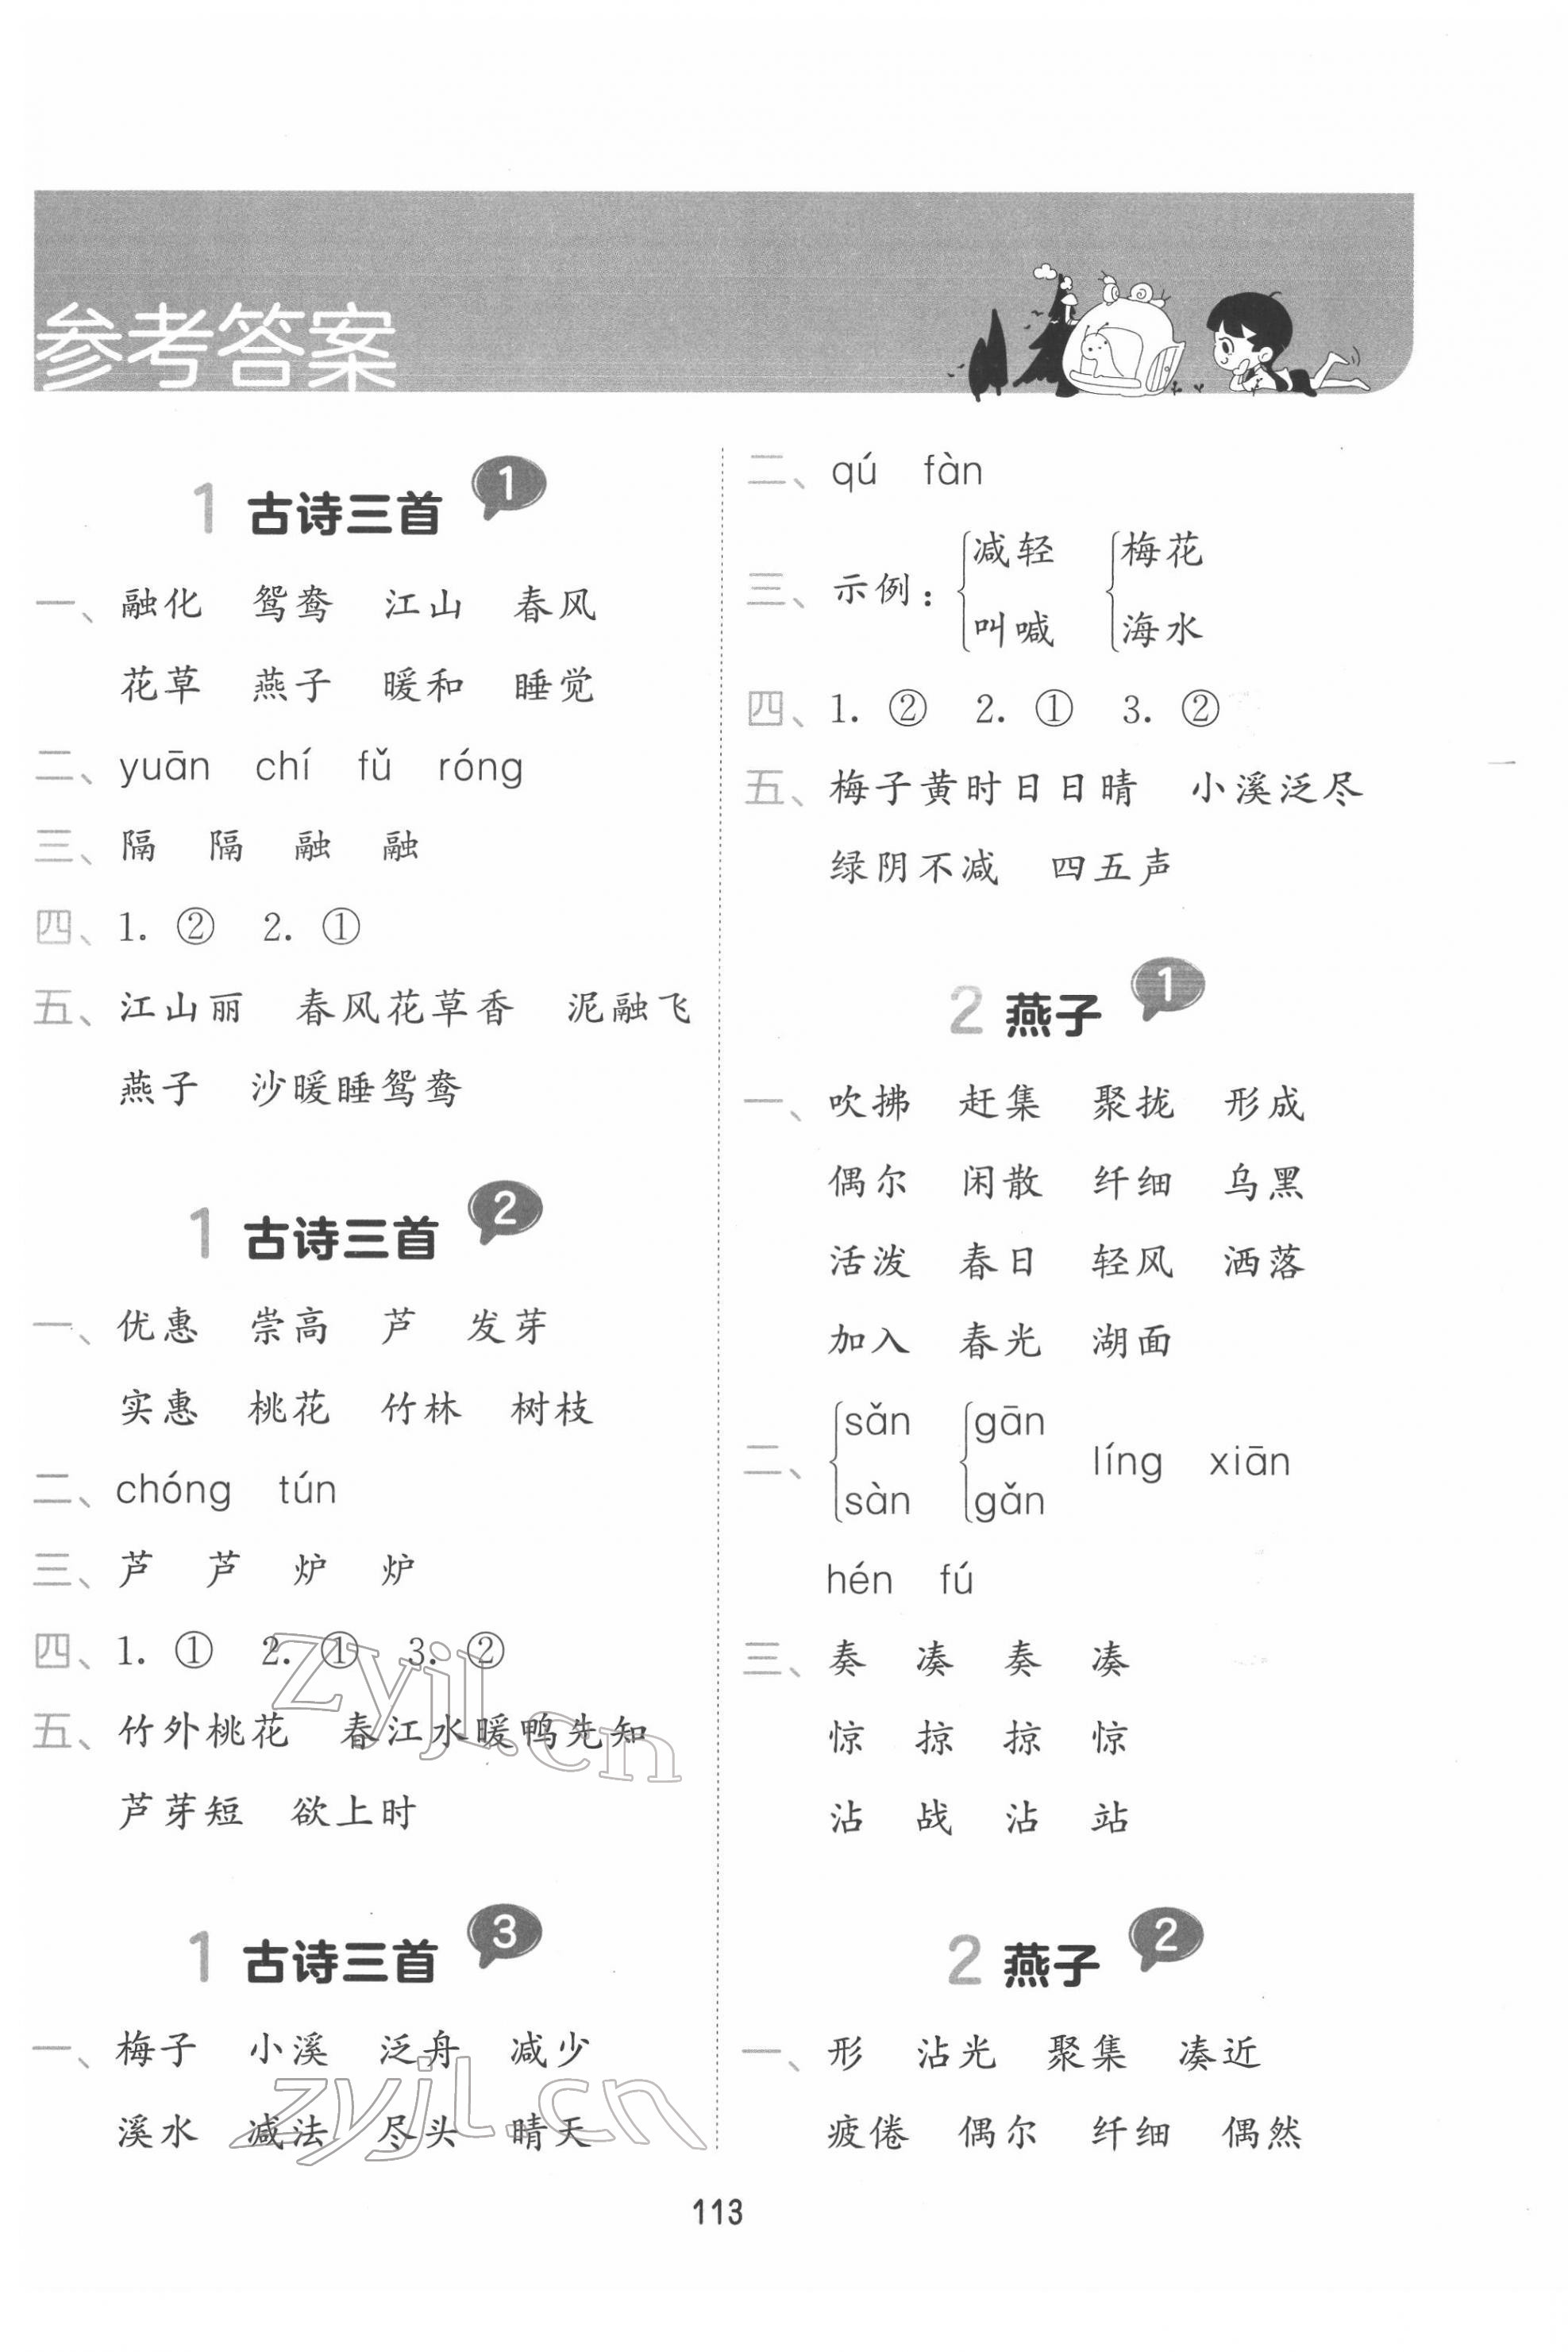 参考答案
1 古诗三首 1
一、融化 鸳鸯 江山 春风
花草 燕子 暖和 睡觉
二、yuān chí fǔ róng
三、隔 隔 融 融
四、1. ② 2. ①
五、江山丽 春风花草香 泥融飞
燕子 沙暖睡鸳鸯
1 古诗三首 2
一、优惠 崇高 芦 发芽
实惠 桃花 竹林 树枝
二、chóng tún
三、芦 芦 炉 炉
四、1. ① 2. ① 3. ②
五、竹外桃花 春江水暖鸭先知
芦芽短 欲上时
1 古诗三首 3
一、梅子 小溪 泛舟 减少
溪水 减法 尽头 晴天
二、qú fàn
三、示例：减轻 梅花
叫喊 海水
四、1. ② 2. ① 3. ②
五、梅子黄时日日晴 小溪泛尽
绿阴不减 四五声
2 燕子 1
一、吹拂 赶集 聚拢 形成
偶尔 闲散 纤细 乌黑
活泼 春日 轻风 洒落
加入 春光 湖面
二、sǎn gān líng xiān
sàn gǎn
hén fú
三、奏 凑 奏 凑
惊 掠 掠 惊
沾 战 沾 站
2 燕子 2
一、形 沾光 聚集 凑近
疲倦 偶尔 纤细 偶然
113
zyjl.cn
zyjl.cn